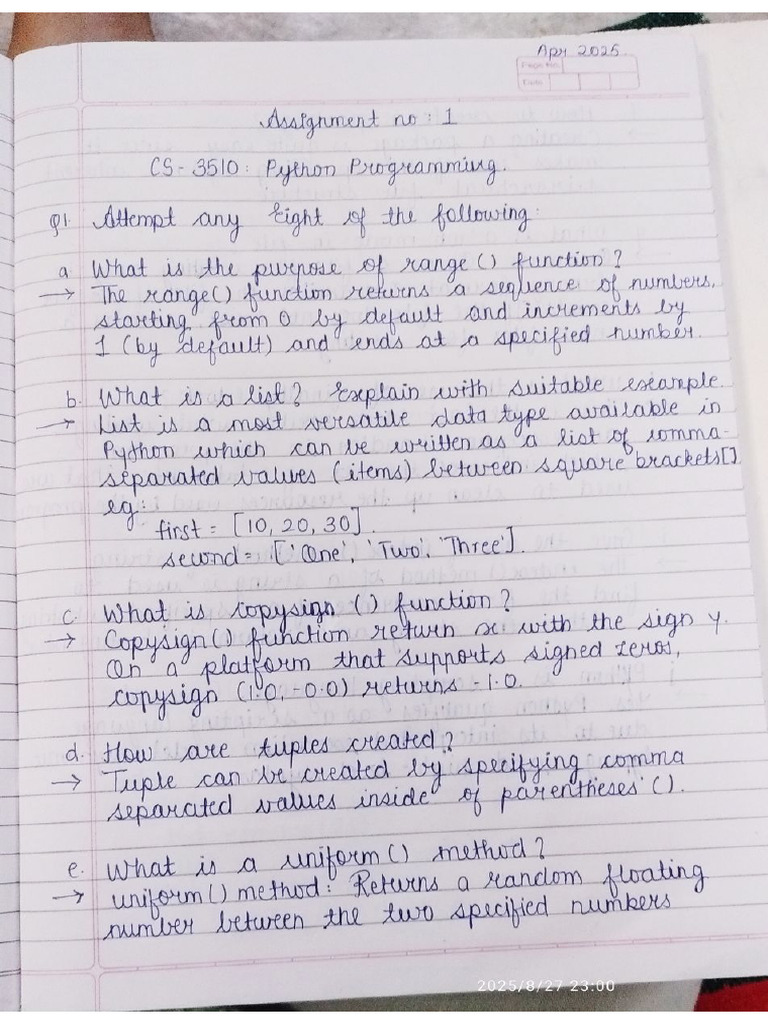 Apr 2025.
Page No.
Date
Assignment no : 1
CS - 3510 : Python Programming.
Q1. Attempt any Eight of the following:
a. What is the purpose of range() function?
→ The range() function returns a sequence of numbers,
starting from 0 by default and increments by
1 (by default) and ends at a specified number.
b. What is a list? Explain with suitable example.
→ List is a most versatile data type available in
Python which can be written as a list of comma-
separated values (items) between square brackets[]
eg:
first = [10, 20, 30].
second = ['One', 'Two', 'Three'].
c. What is copysign () function?
→ Copysign() function return x with the sign y.
On a platform that supports signed zeros,
copysign (1.0, -0.0) returns -1.0.
d. How are tuples created?
→ Tuple can be created by specifying comma
separated values inside of parentheses ().
e. What is a uniform() method?
→ uniform() method: Returns a random floating
number between the two specified numbers
2025/8/27 23:00